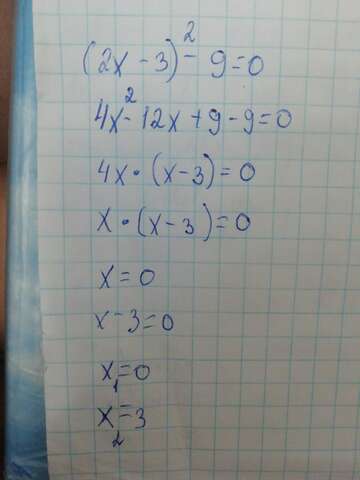 (2x - 3)² - 9 = 0
4x² - 12x + 9 - 9 = 0
4x · (x - 3) = 0
x · (x - 3) = 0
x = 0
x - 3 = 0
x₁ = 0
x₂ = 3